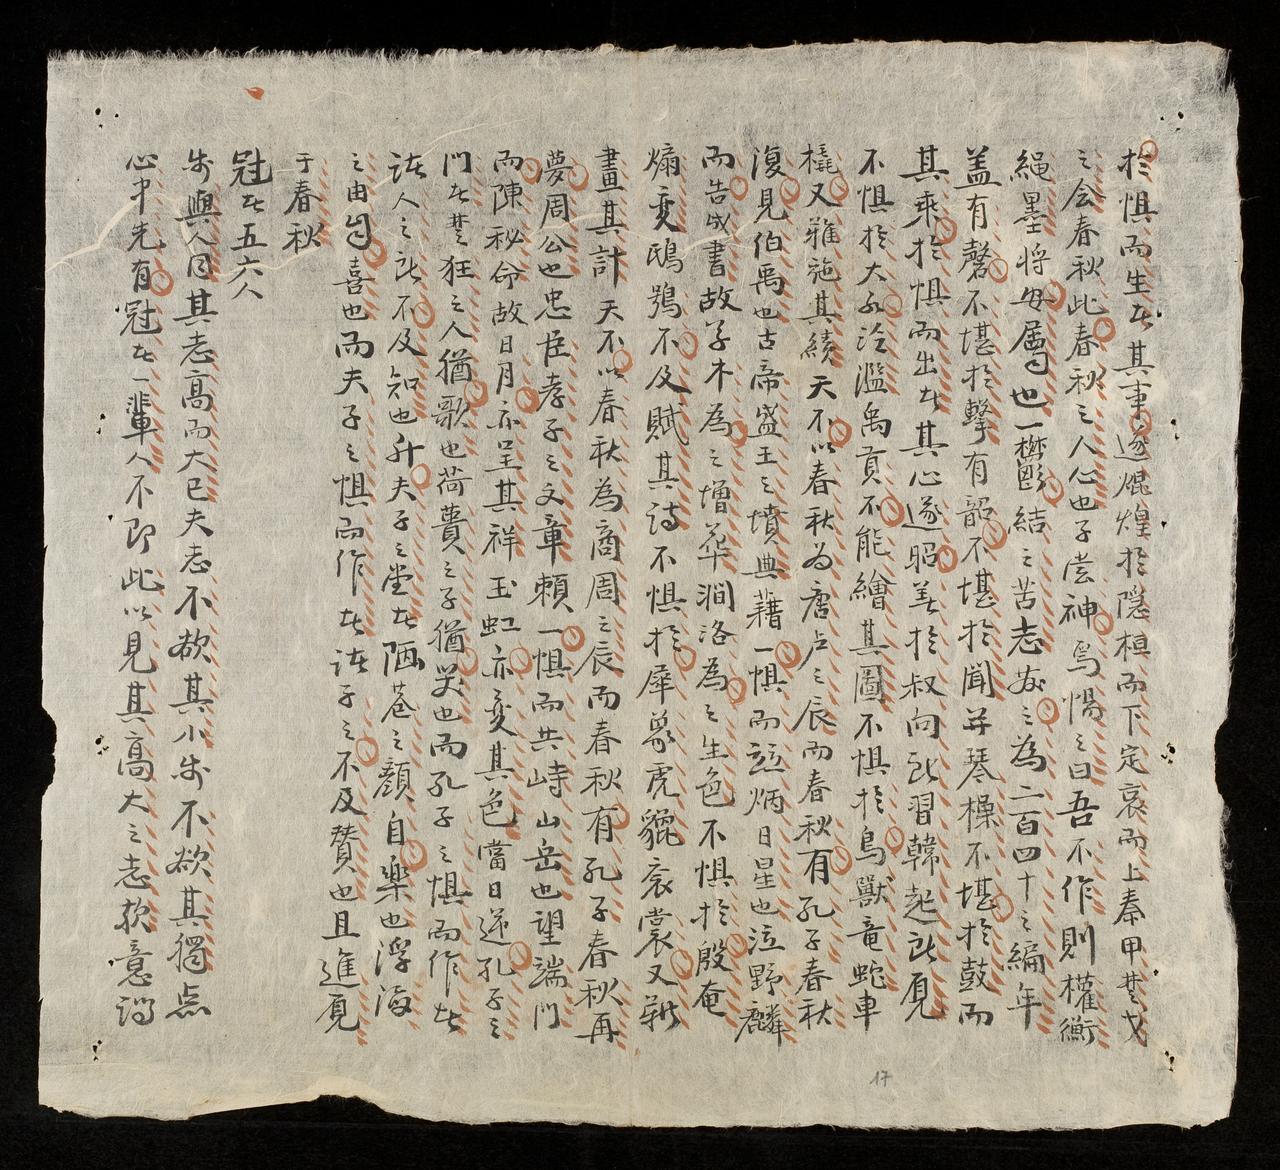 於惧而生者其事遂焜煌於隱桓而下定哀而上秦甲楚戈
之会春秋此春秋之人心也子尝神焉惕之曰吾不作則權衡
繩墨將毋属也一鬱結之苦志故之為二百四十之編年
盖有磬不堪於擊有韶不堪於聞并琴操不堪於鼓而
其乘於惧而出者其心遂昭差於叔向所習韓起所見
不惧於大水泛濫禹貢不能繪其圖不惧於鳥獸竜蛇車
橇又難施其績天不以春秋為唐虞之辰而春秋有孔子春秋
復見伯禹也古帝盛王之墳典藉一惧而並炳日星也泣野麟
而告成書故草木為之增华澗洛為之生色不惧於殷奄
煽变鴟鴞不及賦其詩不惧於犀象虎貔衮裳又難
畫其計天不以春秋為商周之辰而春秋有孔子春秋再
夢周公也忠臣孝子之文章賴一惧而共峙山岳也望端門
而陳秘命故日月亦呈其祥玉虹亦变其色當日遊孔子之
門者楚狂之人猶歌也荷蕢之子猶哭也而孔子之惧而作者
諸人之所不及知也升夫子之堂者陋巷之顔自樂也浮海
之由自喜也而夫子之惧而作者諸子之不及賛也且進覓
于春秋
冠者五六人
步與人同其志高而大已夫志不欲其小步不欲其獨点
心中先有冠者一輩人不即此以見其高大之志欤意謂